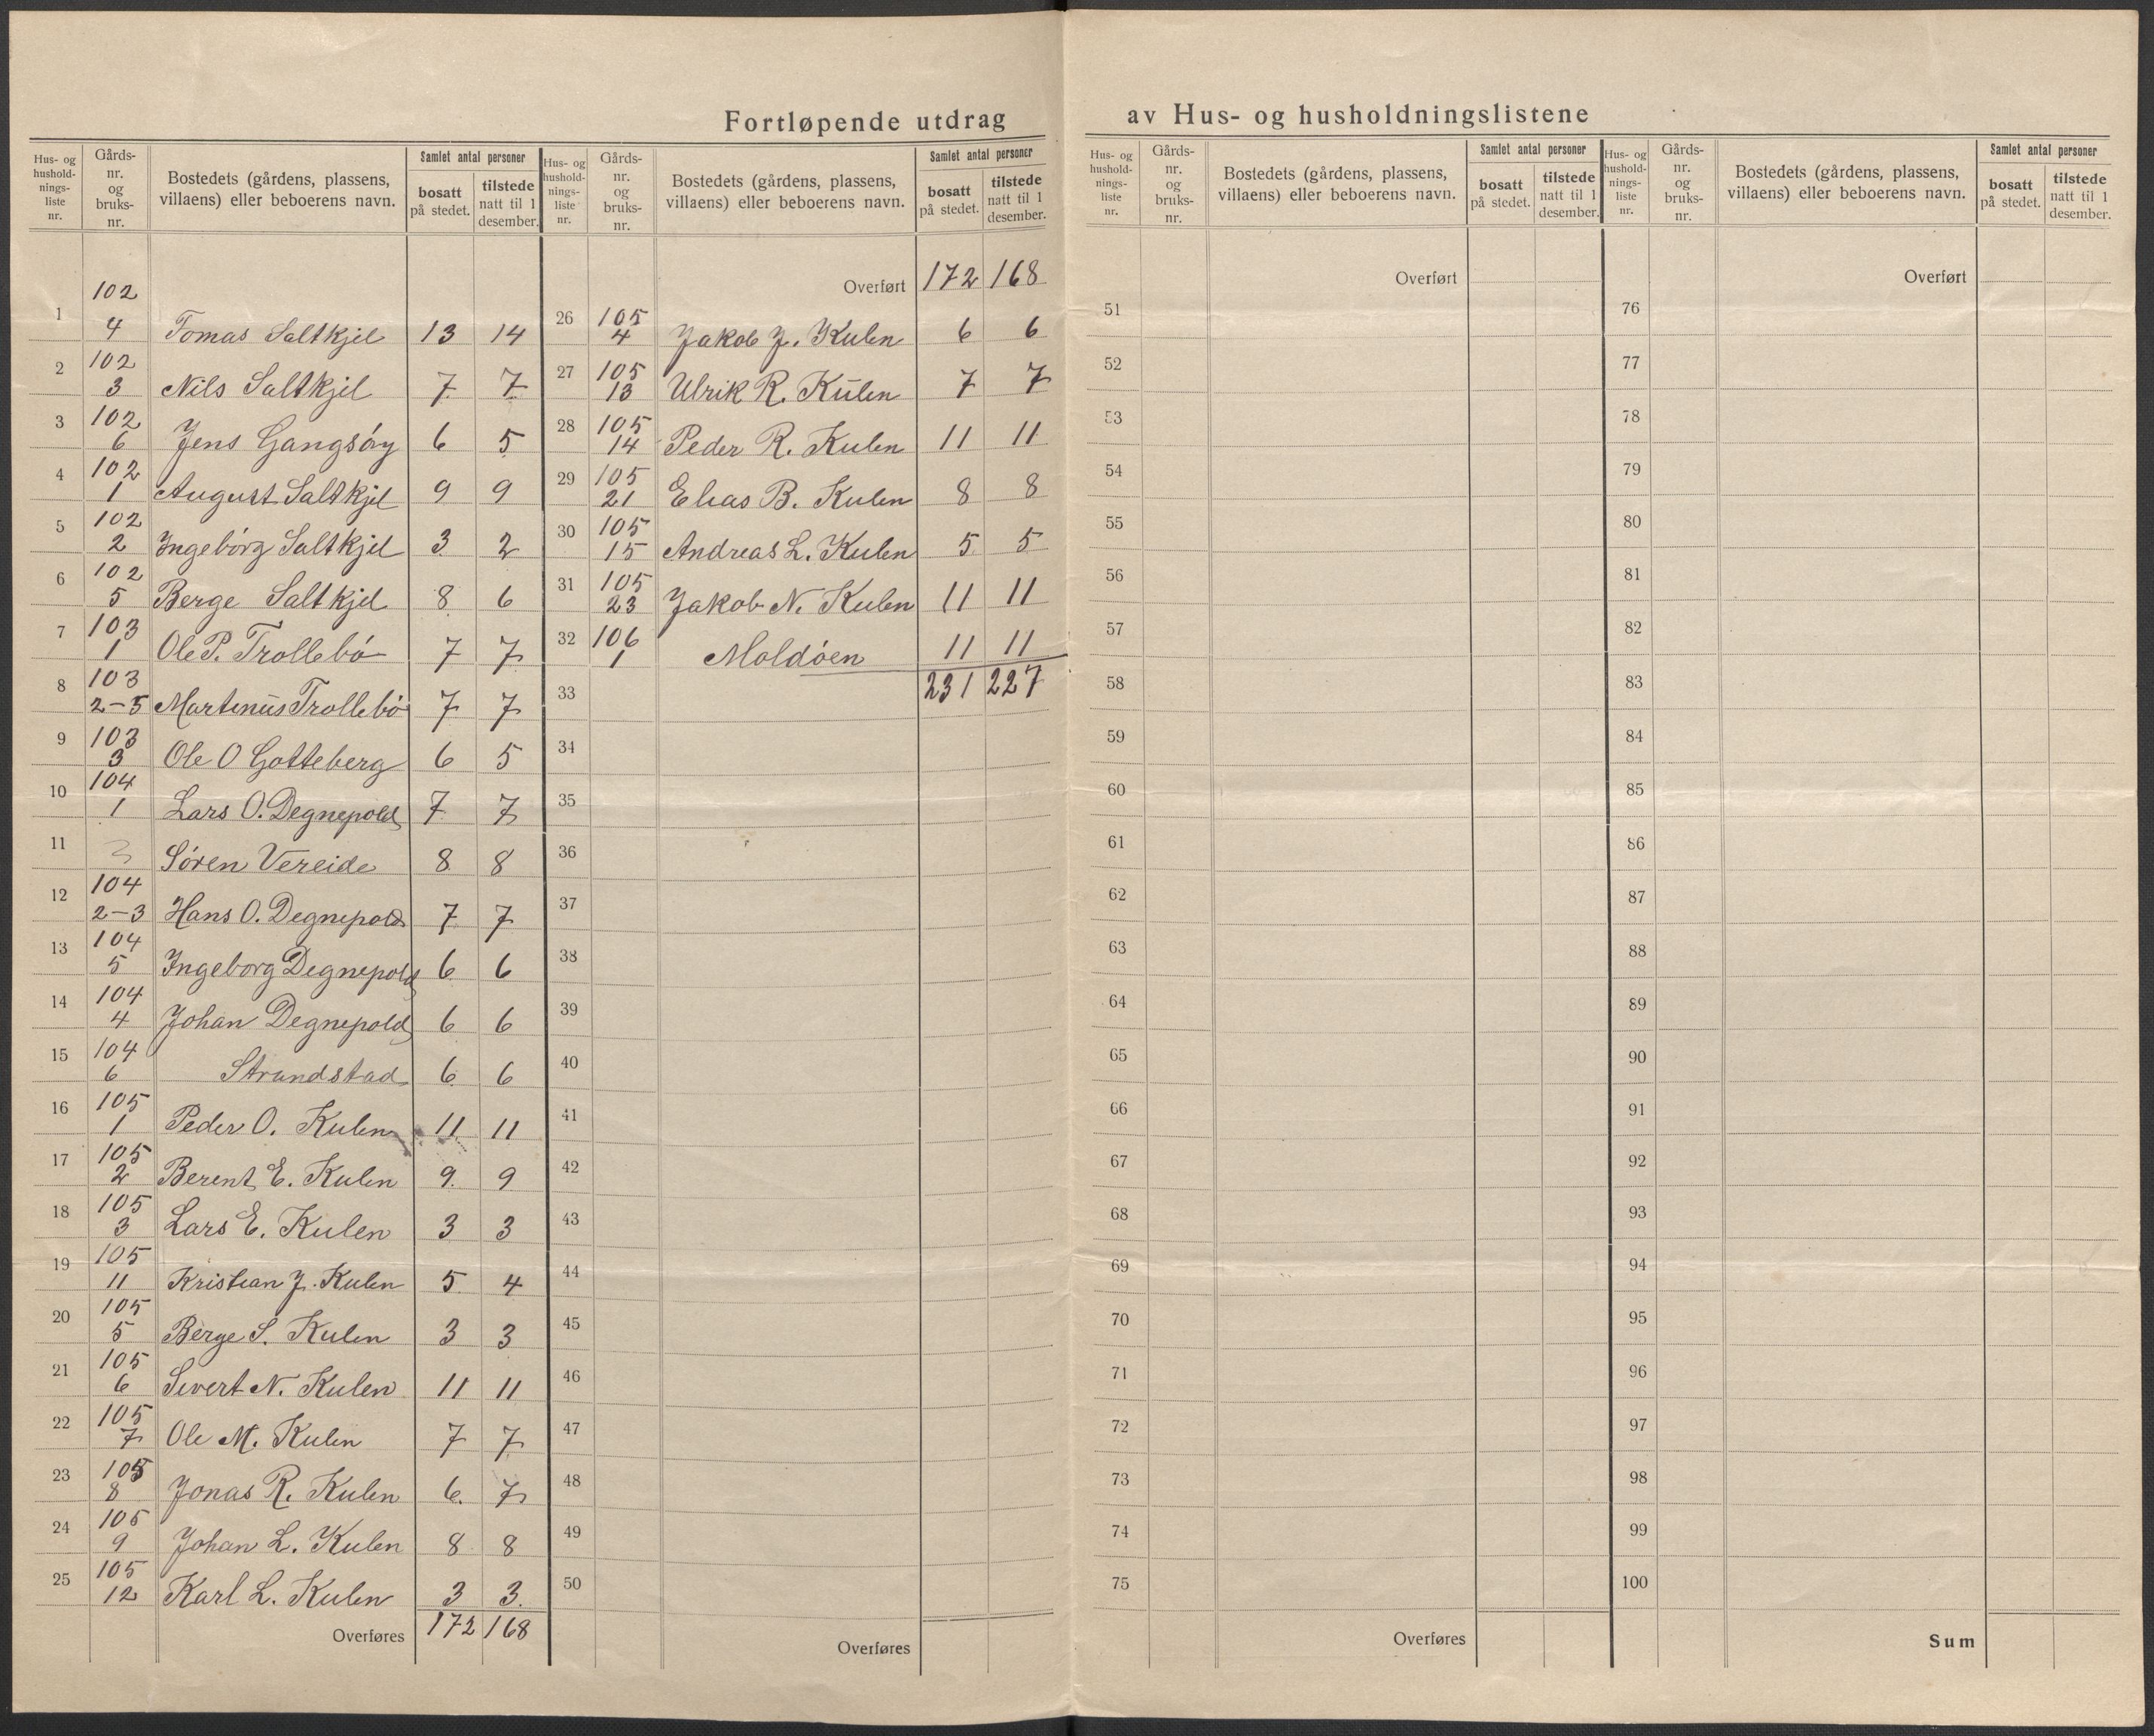 Fortløpende utdrag av Hus- og husholdningslistene
Hus- og hushold- nings- liste nr. | Gårds- nr. og bruks- nr. | Bostedets (gårdens, plassens, villaens) eller beboerens navn. | Samlet antal personer | bosatt på stedet. | tilstede natt til 1 desember.
1 | 102 4 | Tomas Saltkjel | 13 | 14
2 | 102 3 | Nils Saltkjel | 7 | 7
3 | 102 6 | Jens Gangsøy | 6 | 5
4 | 102 1 | August Saltkjel | 9 | 9
5 | 102 2 | Ingebórg Saltkjel | 3 | 2
6 | 102 5 | Berge Saltkjel | 8 | 6
7 | 103 1 | Ole P. Trollebó | 7 | 7
8 | 103 2-5 | Martinus Trollebó | 7 | 7
9 | 103 3 | Ole O Gotteberg | 6 | 5
10 | 104 1 | Lars O. Degnepold | 7 | 7
11 | Sóren Vereide | 8 | 8
12 | 104 2-3 | Hans O. Degnepold | 7 | 7
13 | 104 5 | Ingeborg Degnepold | 6 | 6
14 | 104 4 | Johan Degnepold | 6 | 6
15 | 104 6 | Strandstad | 6 | 6
16 | 105 1 | Peder O. Kulen | 11 | 11
17 | 105 2 | Berent E. Kulen | 9 | 9
18 | 105 3 | Lars E. Kulen | 3 | 3
19 | 105 11 | Kristian J. Kulen | 5 | 4
20 | 105 5 | Berge S. Kulen | 3 | 3
21 | 105 6 | Sivert N. Kulen | 11 | 11
22 | 105 7 | Ole M. Kulen | 7 | 7
23 | 105 8 | Jonas R. Kulen | 6 | 7
24 | 105 9 | Johan L. Kulen | 8 | 8
25 | 105 12 | Karl L. Kulen | 3 | 3
Overføres | 172 | 168
Hus- og hushold- nings- liste nr. | Gårds- nr. og bruks- nr. | Bostedets (gårdens, plassens, villaens) eller beboerens navn. | Samlet antal personer | bosatt på stedet. | tilstede natt til 1 desember.
Overført | 172 | 168
26 | 105 4 | Jakob J. Kulen | 6 | 6
27 | 105 13 | Ulrik R. Kulen | 7 | 7
28 | 105 14 | Peder R. Kulen | 11 | 11
29 | 105 21 | Elias B. Kulen | 8 | 8
30 | 105 15 | Andreas L. Kulen | 5 | 5
31 | 105 23 | Jakob N. Kulen | 11 | 11
32 | 106 1 | Moldóen | 11 | 11
33 | 231 | 227
34
35
36
37
38
39
40
41
42
43
44
45
46
47
48
49
50
Overføres
Hus- og hushold- nings- liste nr. | Gårds- nr. og bruks- nr. | Bostedets (gårdens, plassens, villaens) eller beboerens navn. | Samlet antal personer | bosatt på stedet. | tilstede natt til 1 desember.
Overført
51
52
53
54
55
56
57
58
59
60
61
62
63
64
65
66
67
68
69
70
71
72
73
74
75
Overføres
Hus- og hushold- nings- liste nr. | Gårds- nr. og bruks- nr. | Bostedets (gårdens, plassens, villaens) eller beboerens navn. | Samlet antal personer | bosatt på stedet. | tilstede natt til 1 desember.
Overført
76
77
78
79
80
81
82
83
84
85
86
87
88
89
90
91
92
93
94
95
96
97
98
99
100
Sum